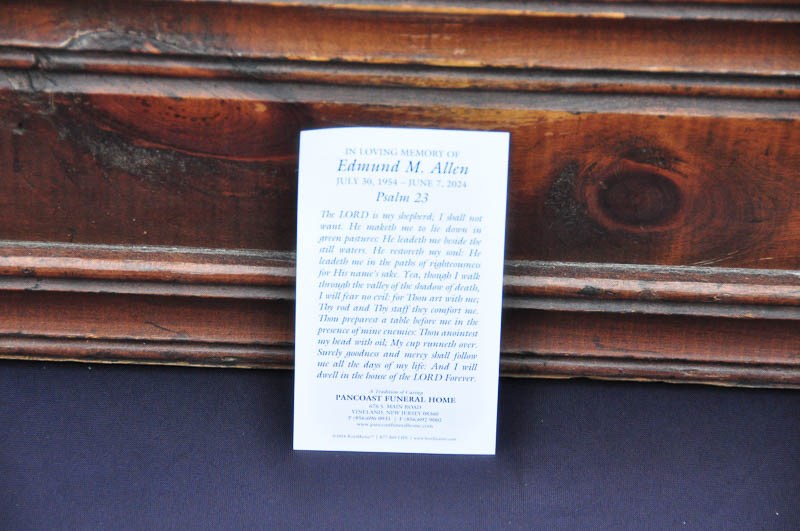 IN LOVING MEMORY OF
Edmund M. Allen
JULY 30, 1954 – JUNE 7, 2024
Psalm 23
The LORD is my shepherd; I shall not
want. He maketh me to lie down in
green pastures: He leadeth me beside the
still waters. He restoreth my soul: He
leadeth me in the paths of righteousness
for His name's sake. Yea, though I walk
through the valley of the shadow of death,
I will fear no evil: for Thou art with me;
Thy rod and Thy staff they comfort me.
Thou preparest a table before me in the
presence of mine enemies: Thou anointest
my head with oil; My cup runneth over.
Surely goodness and mercy shall follow
me all the days of my life: And I will
dwell in the house of the LORD Forever.
A Tradition of Caring
PANCOAST FUNERAL HOME
676 S. MAIN ROAD
VINELAND, NEW JERSEY 08360
www.pancoastfuneralhome.com